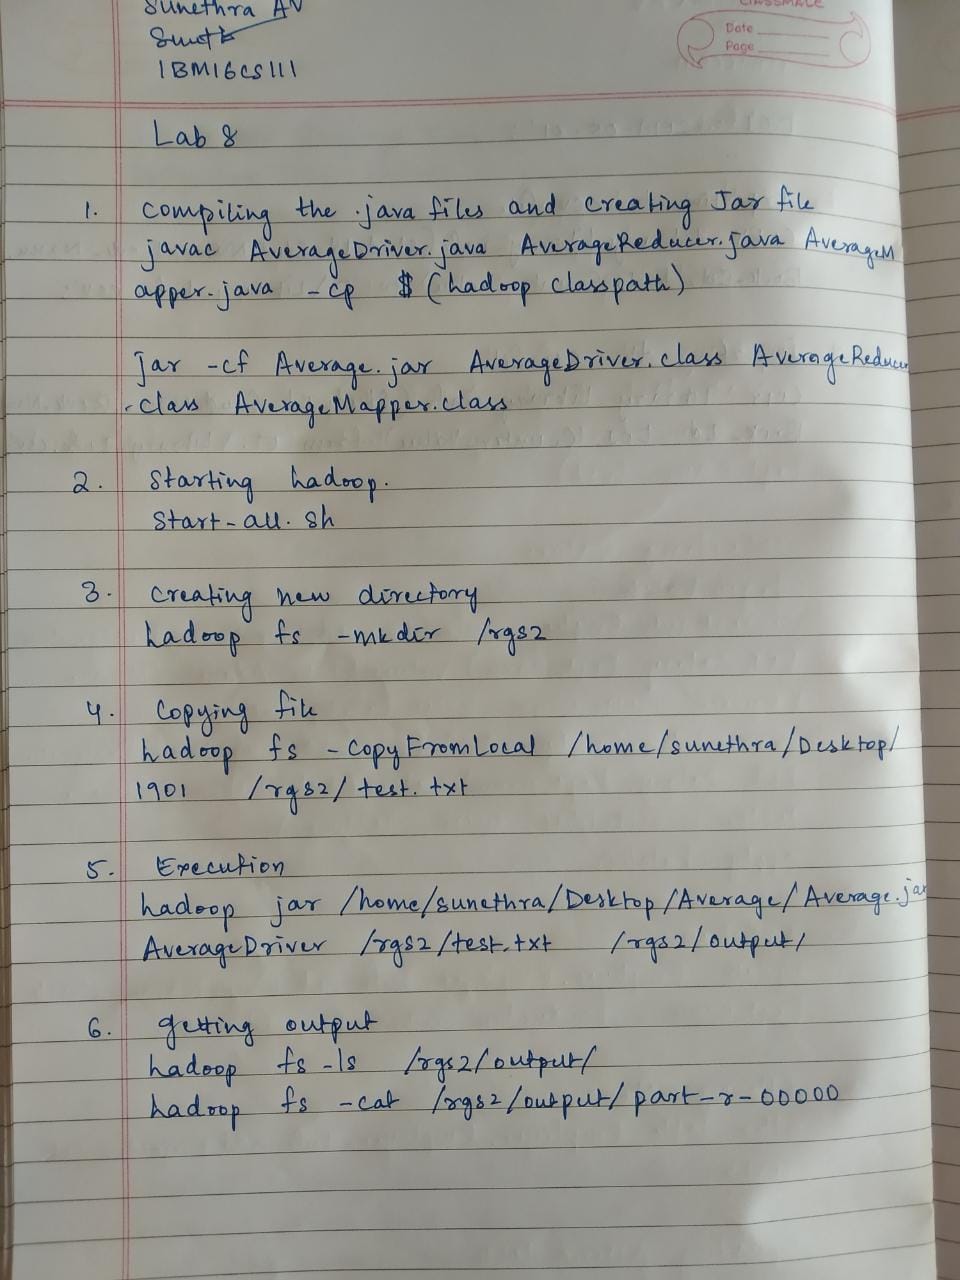 Sunethra AV
CLASSMATE
Date
Page
1BM16CS111
Lab 8
1. Compiling the .java files and creating Jar file
javac AverageDriver.java AverageReducer.java AverageM
apper.java -cp $(hadoop classpath)
jar -cf Average.jar AverageDriver.class AverageReducer
.class AverageMapper.class
2. Starting hadoop.
Start-all.sh
3. Creating new directory
hadoop fs -mkdir /rgs2
4. Copying file
hadoop fs -copyFromLocal /home/sunethra/Desktop/
1901 /rgs2/test.txt
5. Execution
hadoop jar /home/sunethra/Desktop/Average/Average.jar
AverageDriver /rgs2/test.txt /rgs2/output/
6. getting output
hadoop fs -ls /rgs2/output/
hadoop fs -cat /rgs2/output/part-r-00000